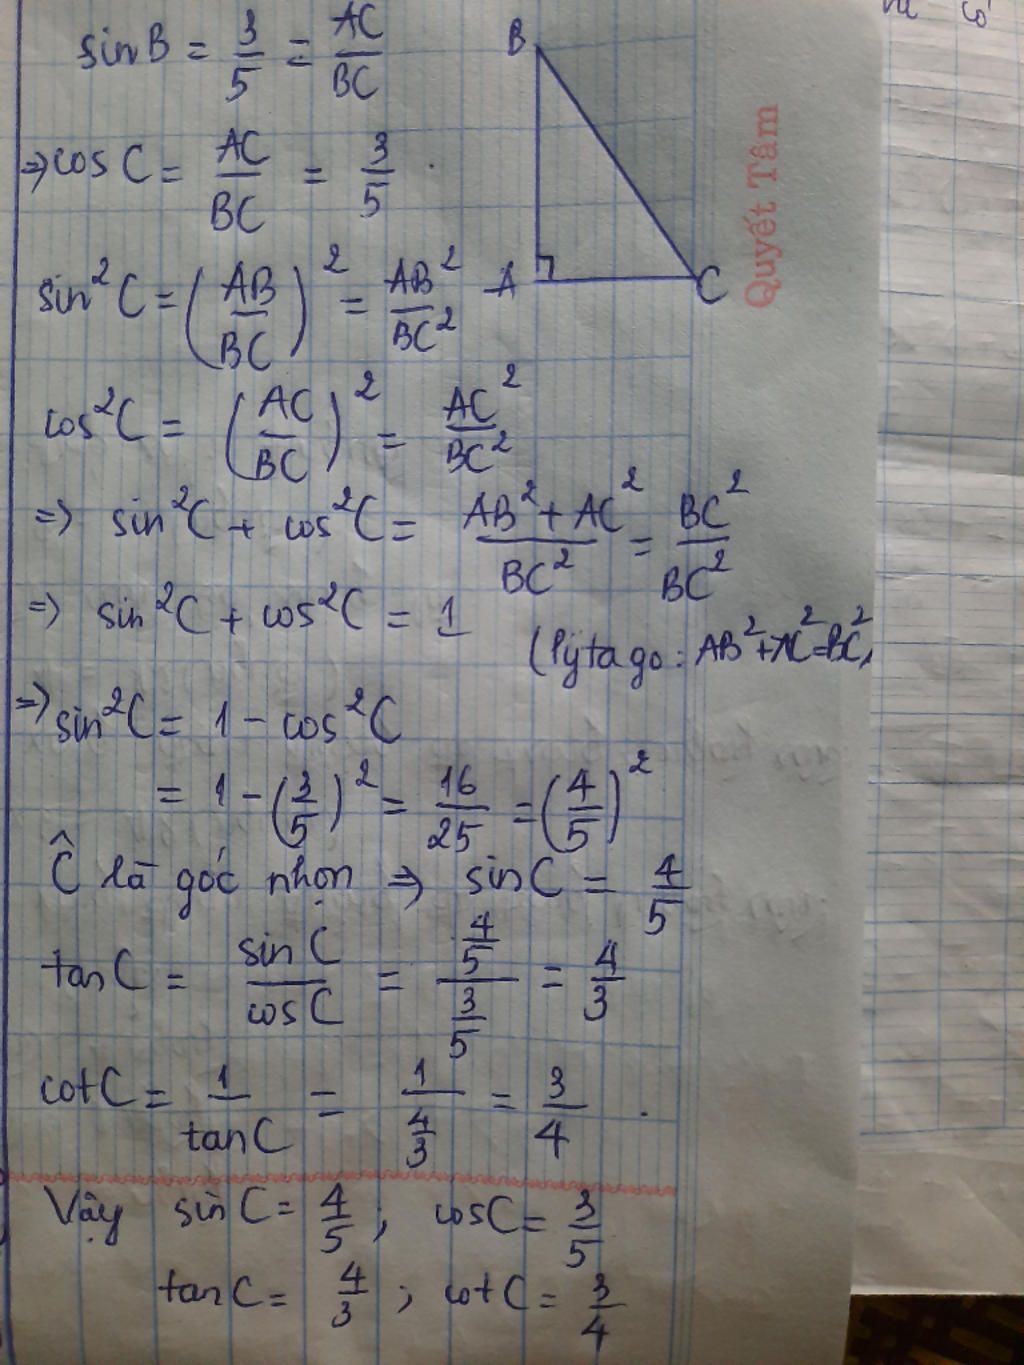 sinB = 3/5 = AC/BC
B
⇒ cos C = AC/BC = 3/5 .
Quyết Tâm
sin²C = (AB/BC)² = AB²/BC²
A
C
cos²C = (AC/BC)² = AC²/BC²
⇒ sin²C + cos²C = (AB² + AC²)/BC² = BC²/BC²
⇒ sin²C + cos²C = 1
(Pytago : AB²+AC²=BC²)
⇒ sin²C = 1 - cos²C
= 1 - (3/5)² = 16/25 = (4/5)²
Ĉ là góc nhọn ⇒ sinC = 4/5
tanC = sinC/cosC = (4/5)/(3/5) = 4/3
cotC = 1/tanC = 1/(4/3) = 3/4 .
Vậy sinC = 4/5 ; cosC = 3/5
tanC = 4/3 ; cotC = 3/4